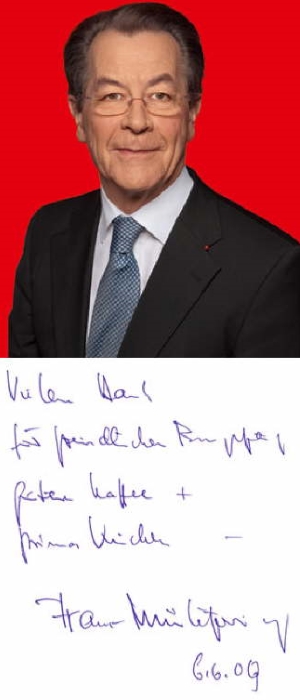 Vielen Dank
für freundlichen Empfang,
guten Kaffee +
prima Kuchen –
Franz Müntefering
6.6.09